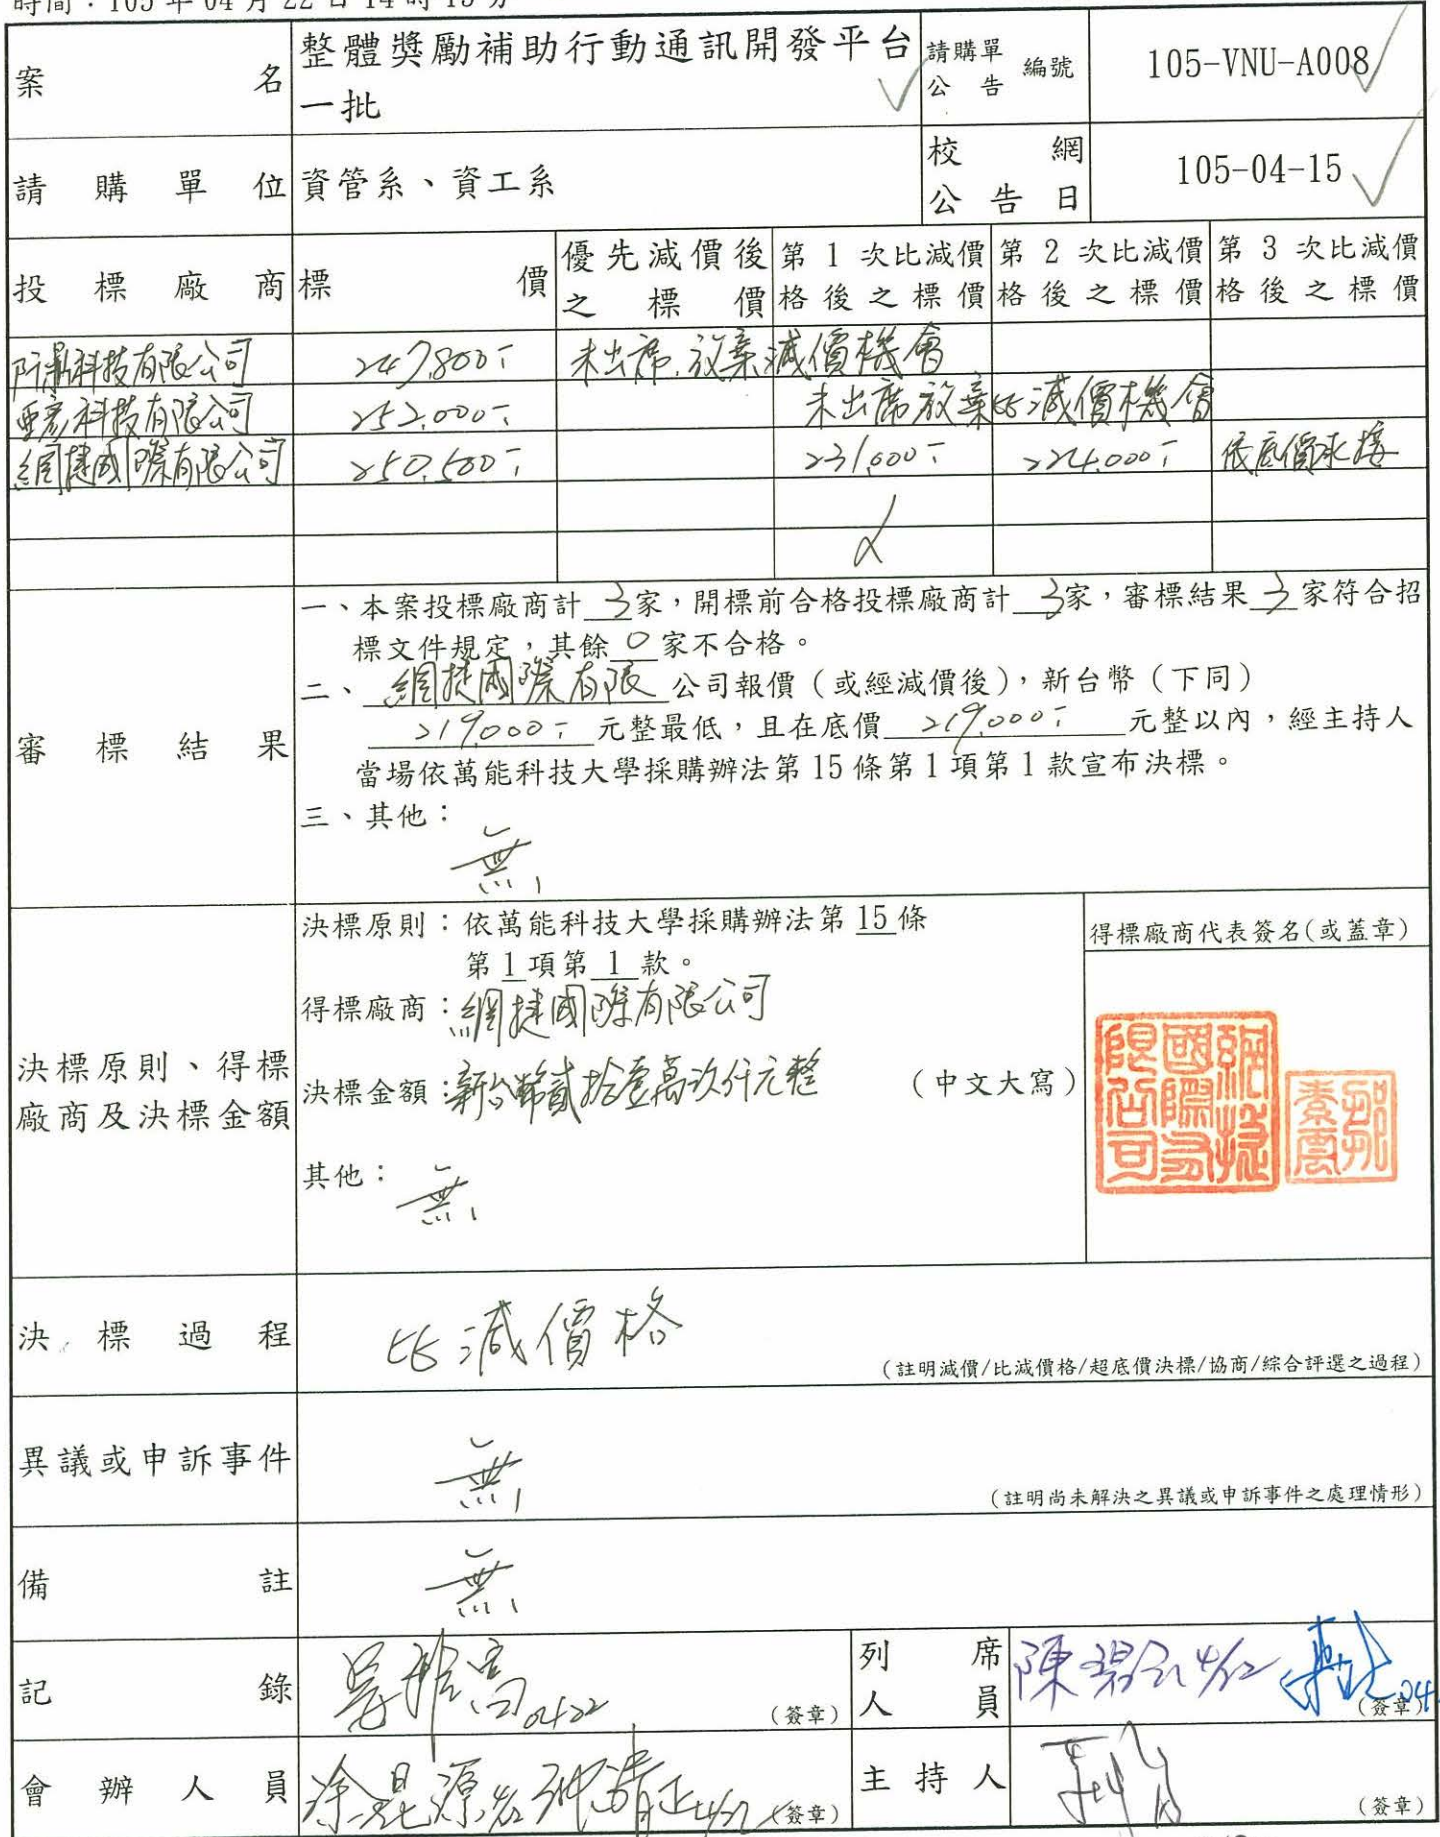 時間：105 年 04 月 22 日 14 時 15 分
案名 整體獎勵補助行動通訊開發平台一批 請購單公告 編號 105-VNU-A008
請購單位 資管系、資工系 校網公告日 105-04-15
投標廠商 標價 優先減價後之標價 第 1 次比減價格後之標價 第 2 次比減價格後之標價 第 3 次比減價格後之標價
科技有限公司 247,800- 未出席.放棄減價機會
科技有限公司 252,000- 未出席放棄比減價機會
網捷國際有限公司 250,500- 231,000- 224,000- 依底價承接
審標結果
一、本案投標廠商計 3 家，開標前合格投標廠商計 3 家，審標結果 3 家符合招
標文件規定，其餘 0 家不合格。
二、 網捷國際有限 公司報價（或經減價後），新台幣（下同）
219,000- 元整最低，且在底價 219,000- 元整以內，經主持人
當場依萬能科技大學採購辦法第 15 條第 1 項第 1 款宣布決標。
三、其他：
無
決標原則、得標廠商及決標金額
決標原則：依萬能科技大學採購辦法第 15 條
第 1 項第 1 款。
得標廠商：網捷國際有限公司
決標金額：新台幣貳拾壹萬玖仟元整 （中文大寫）
其他：無
得標廠商代表簽名(或蓋章)
網捷國際有限公司
決標過程 比減價格
（註明減價/比減價格/超底價決標/協商/綜合評選之過程）
異議或申訴事件 無
（註明尚未解決之異議或申訴事件之處理情形）
備註 無
記錄 0422 （簽章） 列席人員 陳 4/22 04 （簽章）
會辦人員 涂 源 清正 4/22 （簽章） 主持人 （簽章）